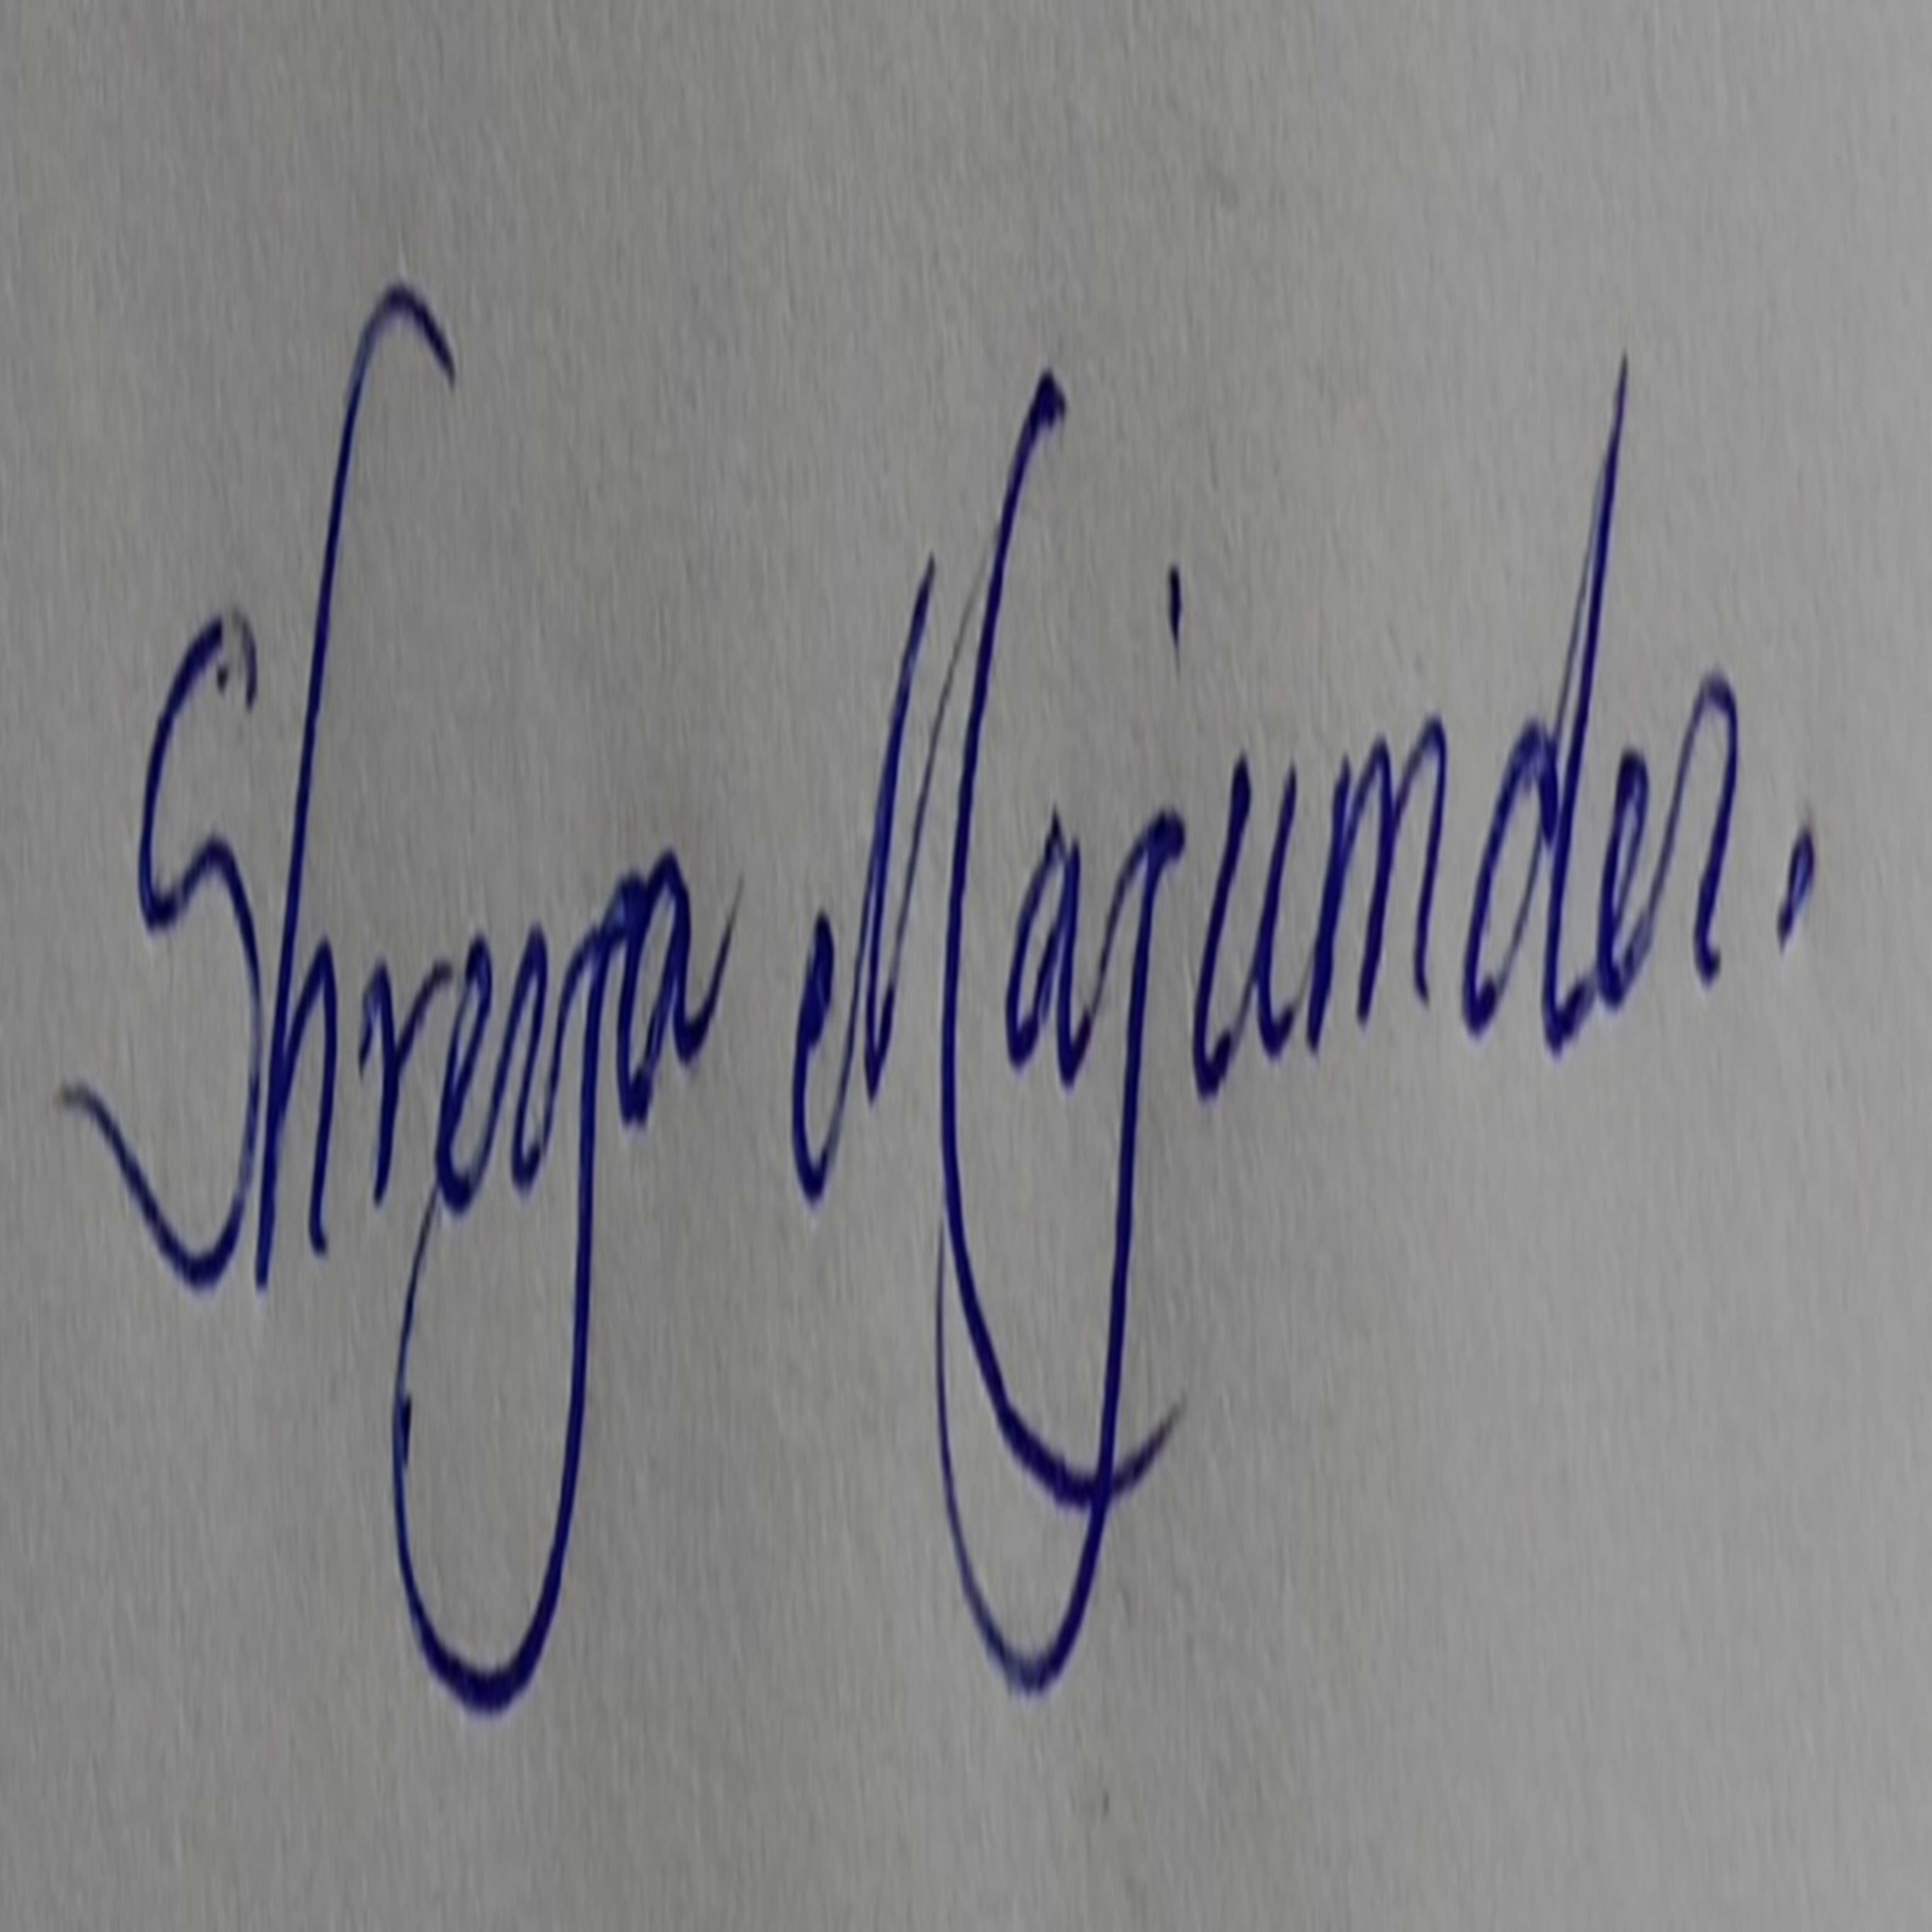 Shreya Majumder.